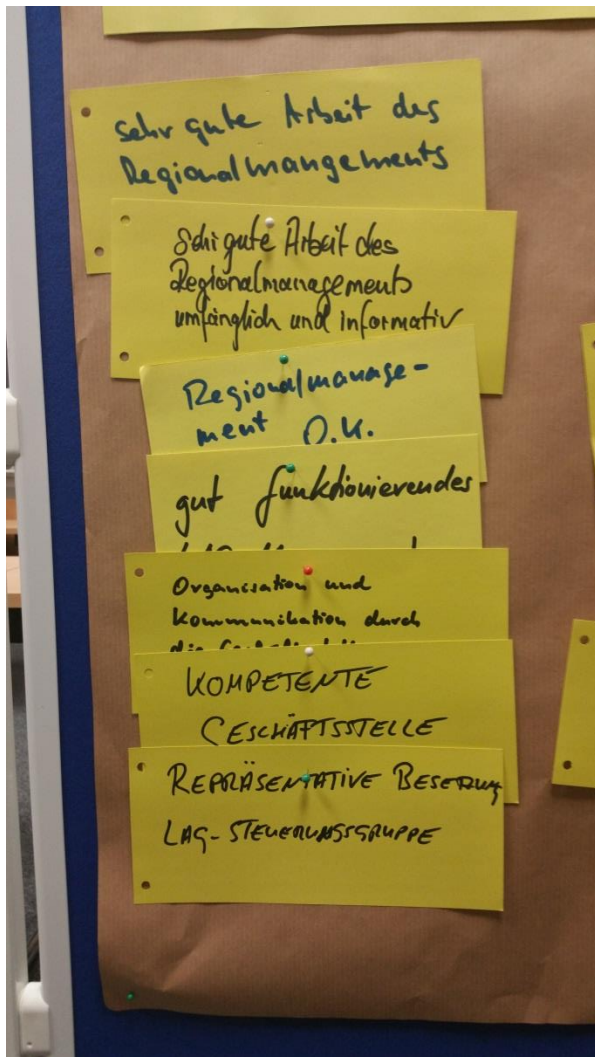 sehr gute Arbeit des
Regionalmangements
Sehr gute Arbeit des
Regionalmanagements
umfänglich und informativ
Regionalmanage-
ment O.K.
gut funktionierendes
Organisation und
Kommunikation durch
die
KOMPETENTE
GESCHÄFTSSTELLE
REPRÄSENTATIVE BESETZUNG
LAG-STEUERUNGSGRUPPE